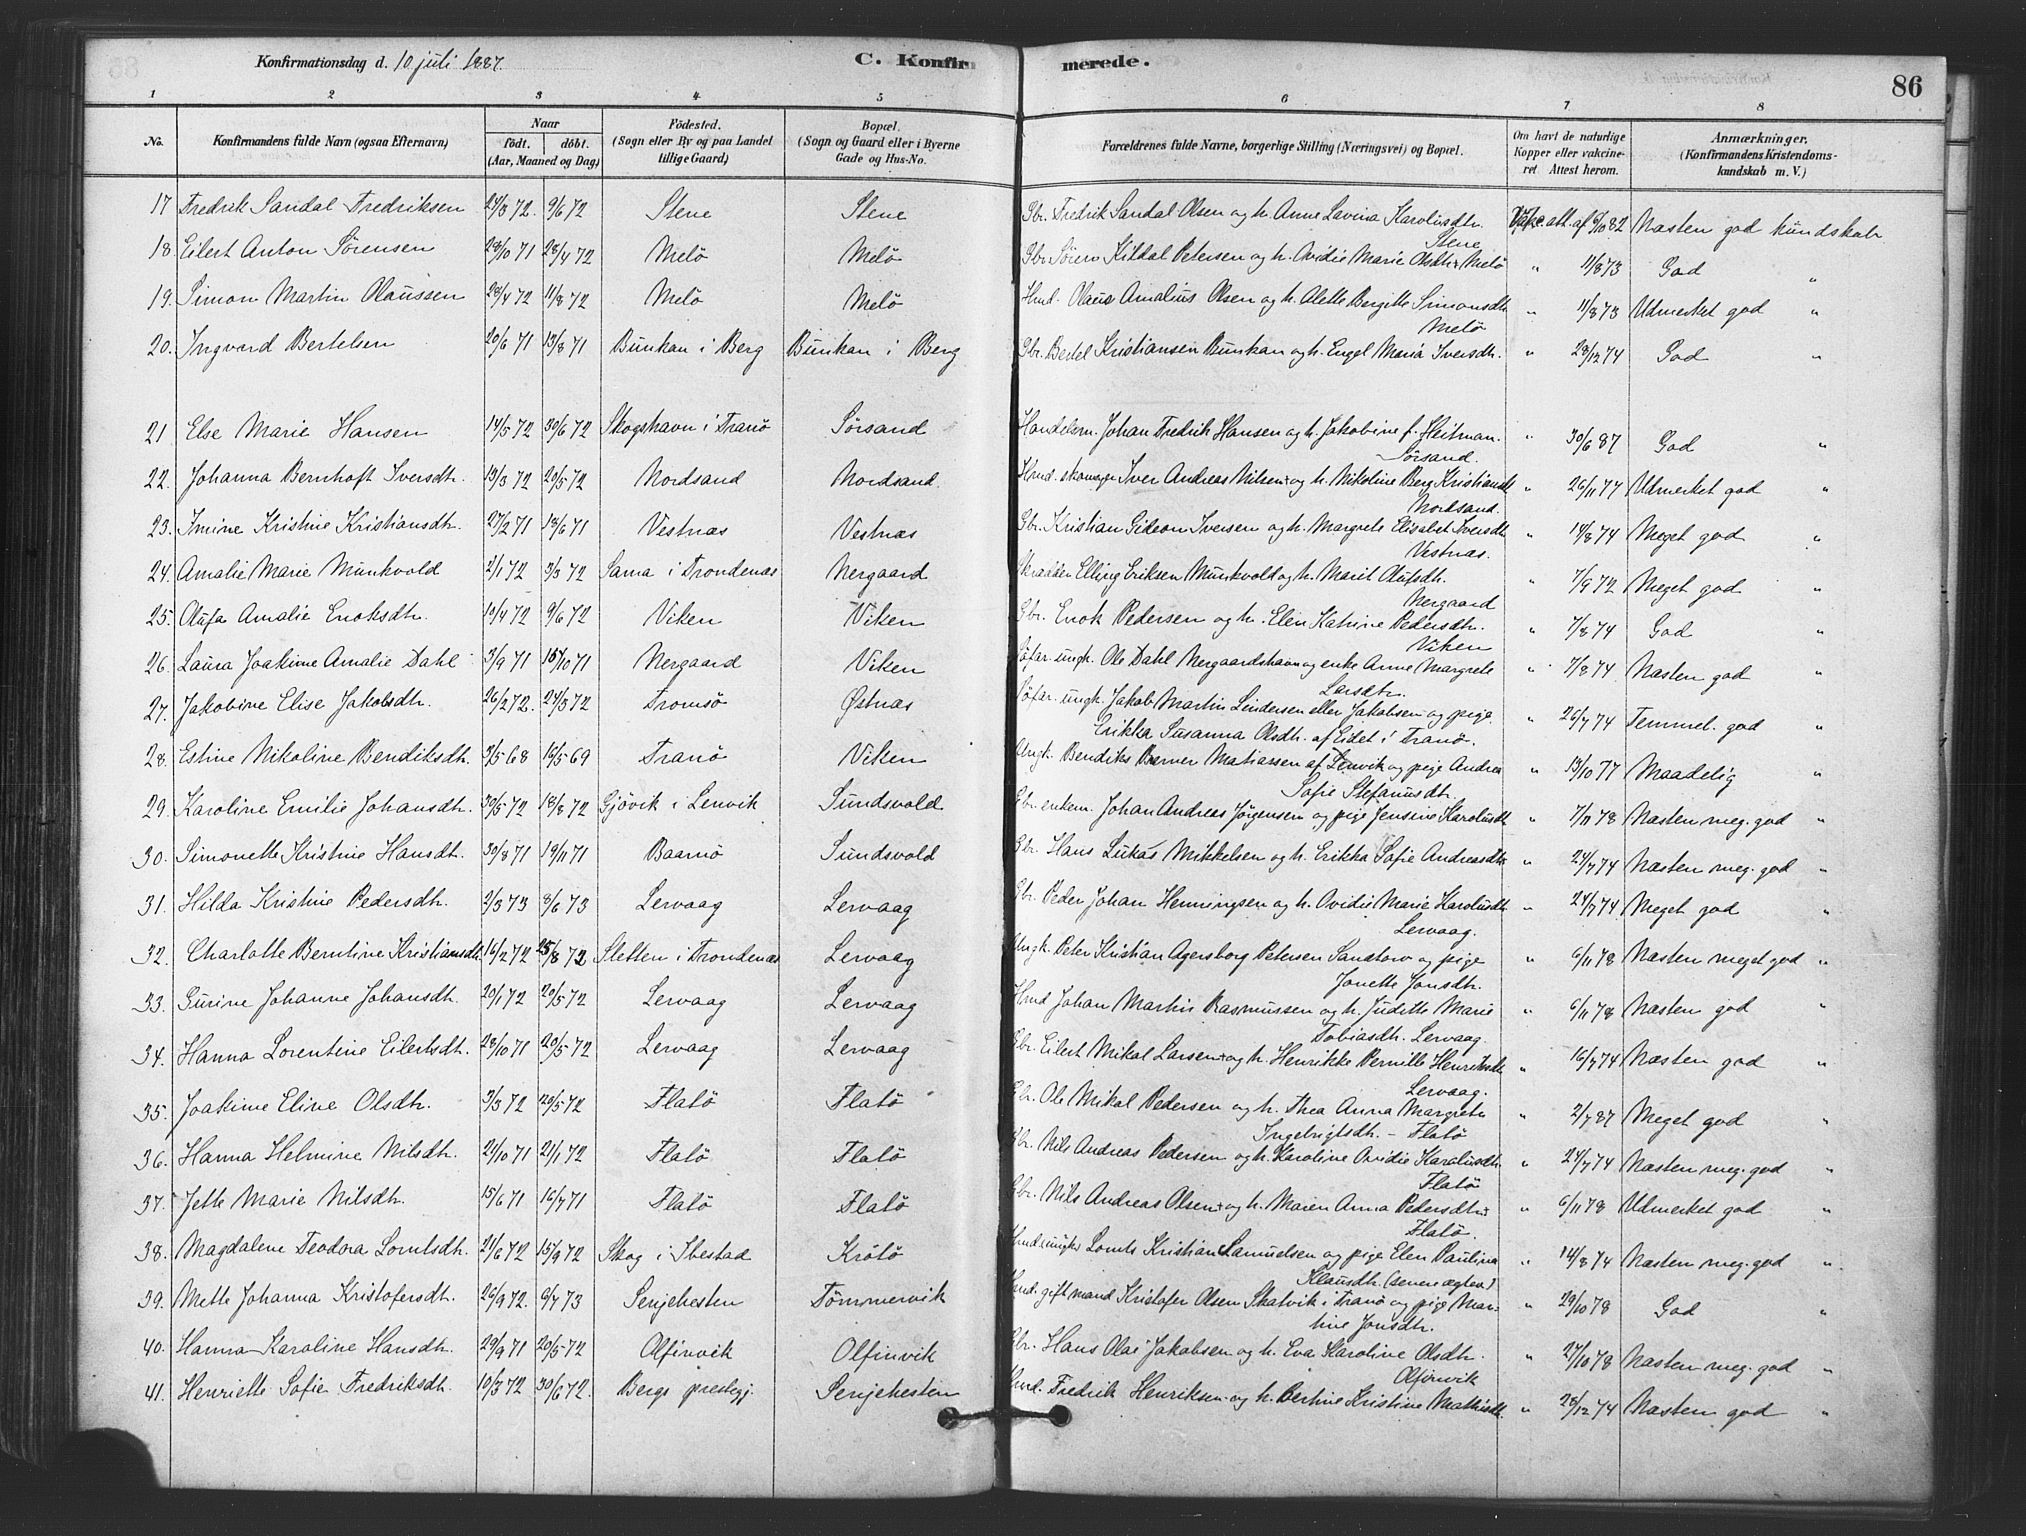 Konfirmationsdag d. 10 juli 1887. C. Konfirmerede. 86
1 2 3 4 5 6 7 8
No. Konfirmandens fulde Navn (ogsaa Efternavn) Naar født. døbt. (Aar, Maaned og Dag) Födested. (Sogn eller By og paa Landet tillige Gaard) Bopæl. (Sogn og Gaard eller i Byerne Gade og Hus-No. Forældrenes fulde Navne, borgerlige Stilling (Næringsvei) og Bopæl. Om havt de naturlige Kopper eller vakcineret Attest herom. Anmærkninger. (Konfirmandens Kristendomskundskab m. V.)
17 Fredrik Sandal Fredriksen 24/3 72. 9/6 72 Stene Stene Gbr. Fredrik Sandal Olsen og h. Anne Lavina Karolusdtr. Stene Vakc. att. af 6/10 82 Næsten god kundskab
18. Eilert Anton Sørensen 28/10 71 28/4 72 Melö Melö Gbr. Sören Kildal Petersen og h. Ovidie Marie Olsdtr. Melö " 11/8 73 God "
19. Simon Martin Olaussen 28/4 72 11/8 72 Melö Melö Hmd. Olaus Amalius Olsen og h. Alette Bergitte Simonsdtr. Melö " 11/8 73 Udmerket god "
20. Ingvard Bertelsen 20/6 71 13/8 71 Bunkan i Berg Bunkan i Berg Gbr. Bertel Kristiansen Bunkan og h. Engel Maria Iversdtr. " 28/12 74 God "
21 Else Marie Hansen 14/5 72 30/6 72 Skogshavn i Tranö Sörsand Handelsm. Johan Fredrik Hansen og h. Jakobine f. Heitman. Sörsand. " 30/6 87 God "
22. Johanna Bernhoft Iversdtr. 13/3 72 20/5 72 Nordsand Nordsand. Hmd. skomager Iver Andreas Nilsen og h. Nikoline Berg Kristiansdtr. Nordsand. " 26/11 74 Udmerket god "
23. Imine Kristine Kristiansdtr. 27/2 71 18/6 71 Vestnæs Vestnæs Gbr. Kristian Gideon Iversen og h. Margrete Elisabet Iversdtr. Vestnæs. " 14/8 74 Meget god "
24. Amalie Marie Munkvold 2/1 72 3/3 72 Sama i Trondenæs Nergaard Skrædder Elling Eriksen Munkvold og h. Marit Olufsdtr. Nergaard " 7/9 72 Meget god "
25. Olufa Amalie Enoksdtr. 10/4 72 9/6 72 Viken Viken Gbr. Enok Pedersen og h. Elen Katrine Pedersdtr. Viken " 7/8 74 God "
26. Laura Joakime Amalie Dahl 3/9 71 15/10 71 Nergaard Viken Söfar. ungk. Ole Dahl Nergaardshavn og enke Anne Margrete Larsdtr. " 7/8 74 Næsten god "
27. Jakobine Elise Jakobsdtr. 26/2 72. 24/3 72 Tromsö Østnæs Söfar. ungk. Jakob Martin Lindersen eller Jakobsen og pige Erikka Susanna Olsdtr. af Eidet i Tranö. " 26/7 74 Temmel. god "
28. Estine Nikoline Bendiksdtr. 3/5 68 16/5 69 Tranö Viken Ungk. Bendiks Berner Matiassen af Lenvik og pige Andrea Sofie Stefanusdtr. " 13/10 77 Maadelig "
29. Karoline Emilie Johansdtr. 30/5 72 18/8 72 Gjövik i Lenvik Sundsvold Gbr. enkem. Johan Andreas Jörgensen og pige Jensine Karolusdtr. " 7/11 78 Næsten meg. god "
30. Simonette Kristine Hansdtr. 30/8 71 19/11 71 Baanö Sundsvold Gbr. Hans Lukas Mikkelsen og h. Erikka Sofie Andreasdtr. " 24/7 74 Næsten meg. god "
31. Hilda Kristine Pedersdtr. 2/3 73 8/6 73 Lervaag Lervaag Gbr. Peder Johan Henningsen og h. Ovidie Marie Karolusdtr. Lervaag. " 24/7 74 Meget god "
32. Charlotte Berntine Kristiansdtr. 16/2 72 25/8 72 Sletten i Trondenæs Lervaag Ungk. Peter Kristian Agersborg Petersen Sandtorv og pige Jonette Jonsdtr. " 6/11 78 Næsten meget god "
33. Gurine Johanne Johansdtr. 20/1 72 20/5 72 Lervaag Lervaag Hmd Johan Martin Rasmussen og h. Juditte Marie Tobiasdtr. Lervaag. " 6/11 78 Næsten god "
34. Hanna Lorentine Eilertsdtr. 28/10 71 20/5 72 Lervaag Lervaag Gbr. Eilert Mikal Larsen og h. Henrikke Pernille Henriksdtr. Lervaag. " 16/7 74 Næsten god "
35. Joakime Eline Olsdtr. 3/3 72 20/5 72 Flatö Flatö Gbr. Ole Mikal Pedersen og h. Thea Anna Margrete Ingebrigtsdtr. - Flatö " 2/7 87 Meget god "
36. Hanna Helmine Nilsdtr. 21/10 71 21/1 72 Flatö Flatö Gbr. Nils Andreas Pedersen og h. Karoline Ovidie Karolusdtr. Flatö " 24/7 74 Næsten meg. god "
37. Jette Marie Nilsdtr. 15/6 71 16/7 71 Flatö Flatö Gbr. Nils Andreas Olsen og h. Maren Anna Pedersdtr. Flatö. " 6/11 78 Udmerket god "
38. Magdalene Teodora Lorntsdtr. 21/6 72 15/9 72 Skog i Ibestad Krötö Hmd. ungk. Lornts Kristian Samuelsen og pige Elen Paulina Klausdtr. (senere ægtev.) " 14/8 74 Næsten meg. god "
39. Mette Johanna Kristofersdtr. 26/9 72. 6/7 73 Senjehesten Tömmervik Hmd. gift mand Kristofer Olsen Skatvik i Tranö og pige Martine Jonsdtr. " 29/10 78 God "
40. Hanna Karoline Hansdtr. 29/9 71 20/5 72 Olfinvik Olfinvik Gbr. Hans Olai Jakobsen og h. Eva Karoline Olsdtr. Olfinvik " 27/10 78 Næsten meg. god "
41. Henriette Sofie Fredriksdtr. 10/3 72 30/6 72. Bergs prestegj. Senjehesten Hmd. Fredrik Henriksen og h. Bertine Kristine Mathisdtr. " 28/12 74 Næsten god "